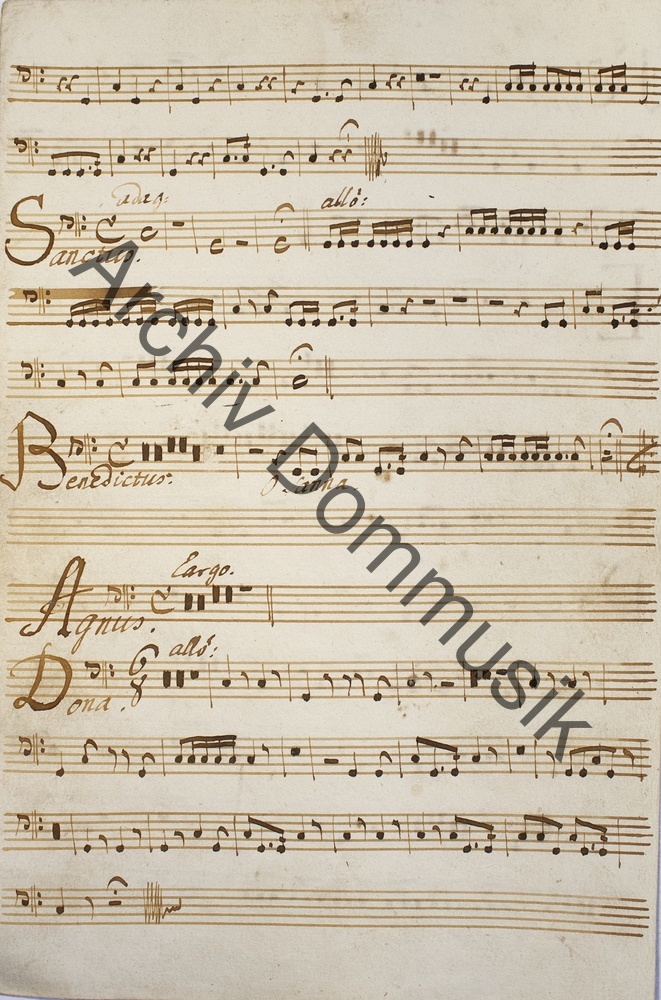 adag:
allo:
Sanctus.
Benedictus.
Osanna
Largo.
Agnus.
allo:
6
8
Dona.
Archiv Dommusik